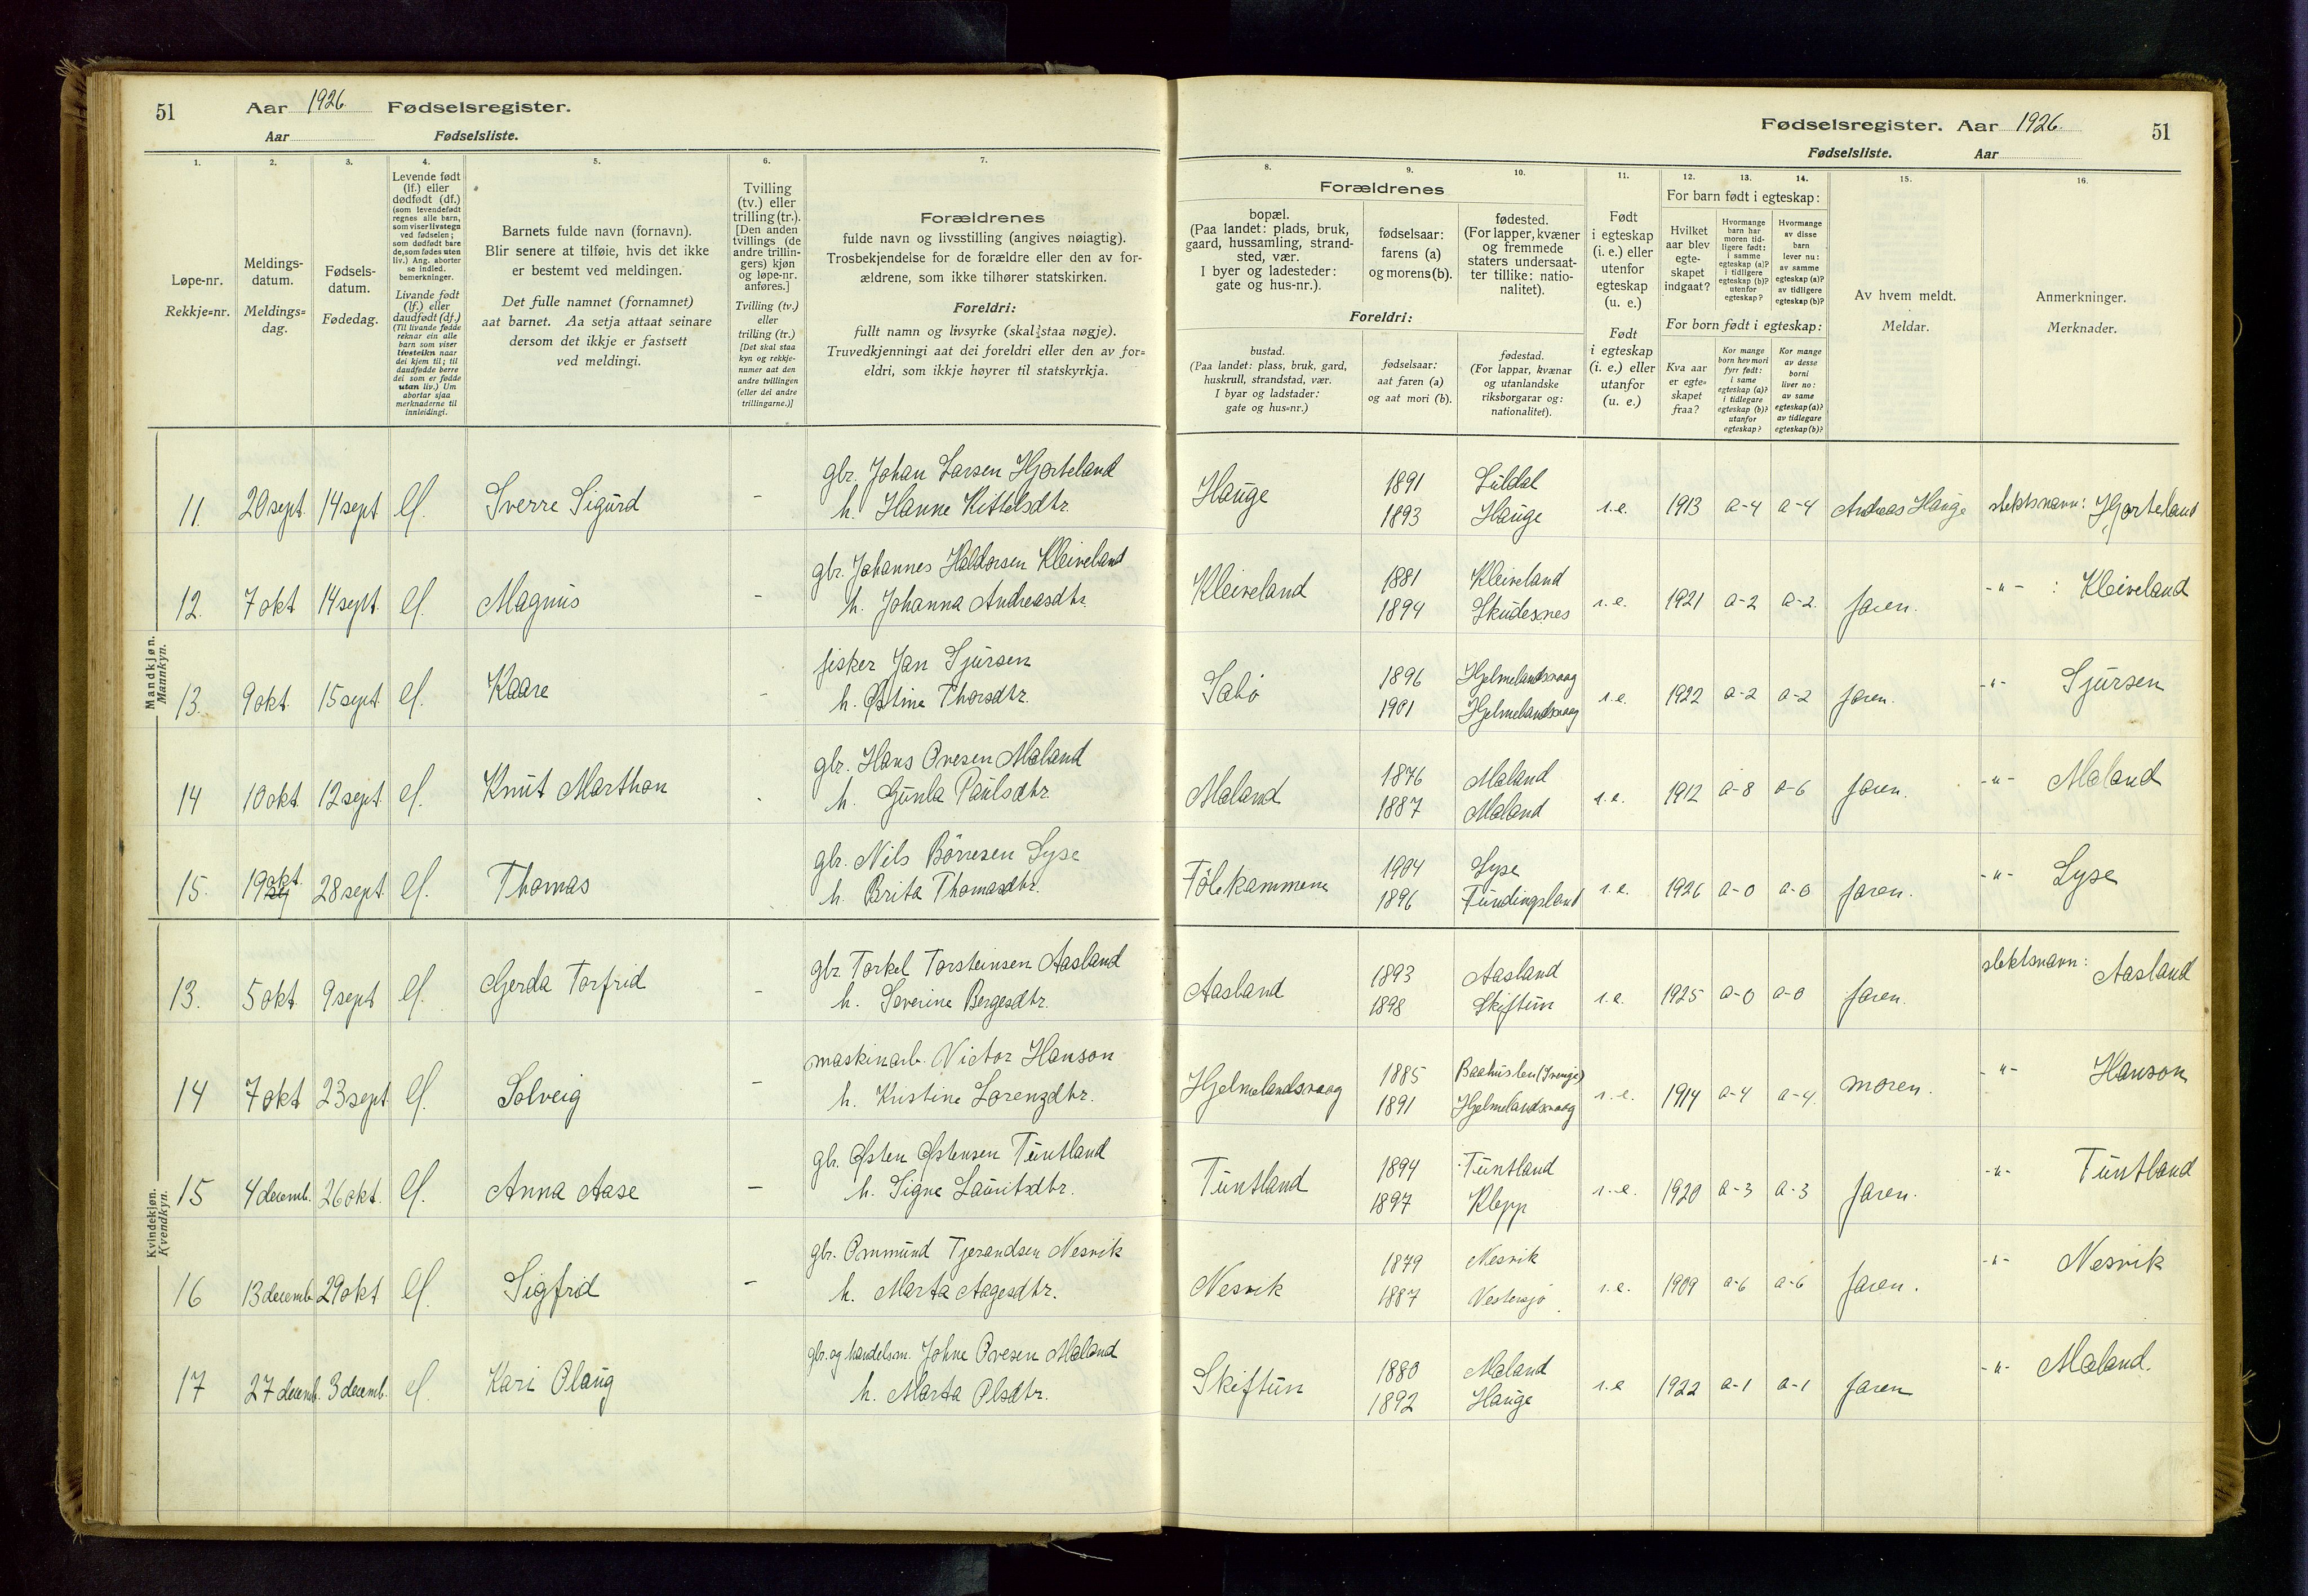 51 Aar 1926. Fødselsregister.
Aar Fødselsliste.
Fødselsregister. Aar 1926. 51
Fødselsliste. Aar
1.
Løpe-nr.
Rekkje=nr.
2.
Meldings-
datum.
Meldings=
dag.
3.
Fødsels-
datum.
Fødedag.
4.
Levende født
(lf.) eller
dødfødt (df.)
(som levendefødt
regnes alle barn,
som viser livstegn
ved fødselen;
som dødfødt bare
de, som fødes uten
liv.) Ang. aborter
se indled.
bemerkninger.
Livande født
(lf.) eller
daudfødt (df.)
(Til livande fødde
reknar ein alle
barn som viser
livsteikn naar
dei kjem til; til
daudfødde berre
dei som er fødde
utan liv.) Um
abortar sjaa
merknaderne til
innleidingi.
5.
Barnets fulde navn (fornavn).
Blir senere at tilføie, hvis det ikke
er bestemt ved meldingen.
Det fulle namnet (fornamnet)
aat barnet. Aa setja attaat seinare
dersom det ikkje er fastsett
ved meldingi.
6.
Tvilling
(tv.) eller
trilling (tr.).
[Den anden
tvillings (de
andre trillin-
gers) kjøn
og løpe-nr.
anføres.]
Tvilling (tv.)
eller
trilling (tr.)
[Det skal staa
kyn og rekkje-
numer aat den
andre tvillingen
(eller dei andre
trillingarne.)]
7.
Forældrenes
fulde navn og livsstilling (angives nøiagtig).
Trosbekjendelse for de forældre eller den av for-
ældrene, som ikke tilhører statskirken.
Foreldri:
fullt namn og livsyrke (skal staa nøgje).
Truvedkjenningi aat dei foreldri eller den av for=
eldri, som ikkje høyrer til statskyrkja.
Forældrenes
8.
bopæl.
(Paa landet: plads, bruk,
gaard, hussamling, strand-
sted, vær.
I byer og ladesteder:
gate og hus-nr.).
9.
fødselsaar:
farens (a)
og morens (b).
10.
fødested.
(For lapper, kvæner
og fremmede
staters undersaat-
ter tillike: natio-
nalitet).
Foreldri:
bustad.
(Paa landet: plass, bruk, gard,
huskrull, strandstad, vær.
I byar og ladstader:
gate og hus=nr.)
fødselsaar:
aat faren (a)
og aat mori (b).
fødestad.
(For lappar, kvænar
og utanlandske
riksborgarar og:
nationalitet).
11.
Født
i egteskap
(i. e.) eller
utenfor
egteskap
(u. e.)
Født
i egteskap
(i. e.) eller
utanfor
(u. e.)
12. 13. 14.
For barn født i egteskap:
Hvilket
aar blev
egte-
skapet
indgaat?
Hvormange
barn har
moren tid-
ligere født:
i samme
egteskap (a)?
i tidligere
egteskap (b)?
utenfor
egteskap?
Hvormange
av disse
barn
lever nu:
av samme
egteskap (a)?
av tidligere
egteskap (b)?
For born født i egteskap:
Kva aar
er egte=
skapet
fraa?
Kor mange
born hev mori
fyrr født:
i same
egteskap (a)?
i tidlegare
egteskap (b)?
utanfor
egteskap?
Kor mange
av desse
borni
liver no:
av same
egteskap (a)?
av tidlegare
egteskap (b)?
15.
Av hvem meldt.
Meldar.
16.
Anmerkninger.
Merknader.
Mandkjøn.
Mannkyn.
gbr. Johan Larsen Hjorteland 1891 Suldal
11. 20 sept. 14 sept lf. Sverre Sigurd - h. Hanne Kittelsdtr. Hauge 1893 Hauge i.e. 1913 a-4 a-4 Andreas Hauge slektsnavn: Hjorteland
gbr. Johannes Haldorsen Kleiveland 1881 Kleiveland
12. 7 okt 14 sept. lf. Magnus - h. Johanna Andreasdtr. Kleiveland 1894 Skudesnes i.e. 1921 a-2 a-2. faren. -"- : Kleiveland
fisker Jan Sjursen 1896 Hjelmelandsvaag
13. 9 okt. 15 sept. lf. Kaare - h. Østine Thorsdtr. Sabø 1901 Hjelmelandsvaag i.e. 1922 a-2 a-2 faren. -"- Sjursen
gbr. Hans Ovesen Mæland 1876 Mæland
14 10 okt. 12 sept. lf. Knut Marthon - h. Gunla Paulsdtr. Mæland 1887 Mæland i.e. 1912 a-8 a-6 faren. -"- Mæland
gbr. Nils Børresen Lyse 1904 Lyse
15. 19 okt. 28 sept. lf. Thomas h. Brita Thomasdtr. Fölekammene 1896 Fundingsland i.e. 1926 a-0 a-0 faren. -"- Lyse
Kvindekjøn.
Kvendkyn.
gbr Torkel Torsteinsen Aasland 1893 Aasland
13. 5 okt. 9 sept lf. Gjerda Torfrid - h. Severine Bergesdtr. Aasland 1898 Skiftun i.e. 1925 a-0 a-0 faren. slektsnavn: Aasland
maskinarb. Victor Hanson 1885 Baahuslen (Sverige)
14 7 okt 23 sept lf. Solveig - h. Kristine Lorenzdtr. Hjelmelandsvaag 1891 Hjelmelandsvaag i.e. 1914 a-4 a-4. moren. -"- Hanson
gbr. Østen Østensen Tuntland 1894 Tuntland
15 4 decemb. 26 okt. lf. Anna Aase - h. Signe Lauritsdtr. Tuntland 1897 Klepp i.e. 1920 a-3 a-3 faren. -"- Tuntland
gbr. Ommund Tjerandsen Nesvik 1879 Nesvik
16 13 decemb 29 okt lf. Sigfrid - h. Marta Aagesdtr. Nesvik 1887 Vestersjø i.e. 1909 a-6 a-6 faren. -"- Nesvik
gbr. og handelsm. Johne Ovesen Mæland 1880 Mæland
17 27 decemb. 3 decemb. lf. Kari Olaug h. Marta Olsdtr. Skiftun 1892 Hauge i.e 1922 a-1 a-1 faren -"- Mæland.